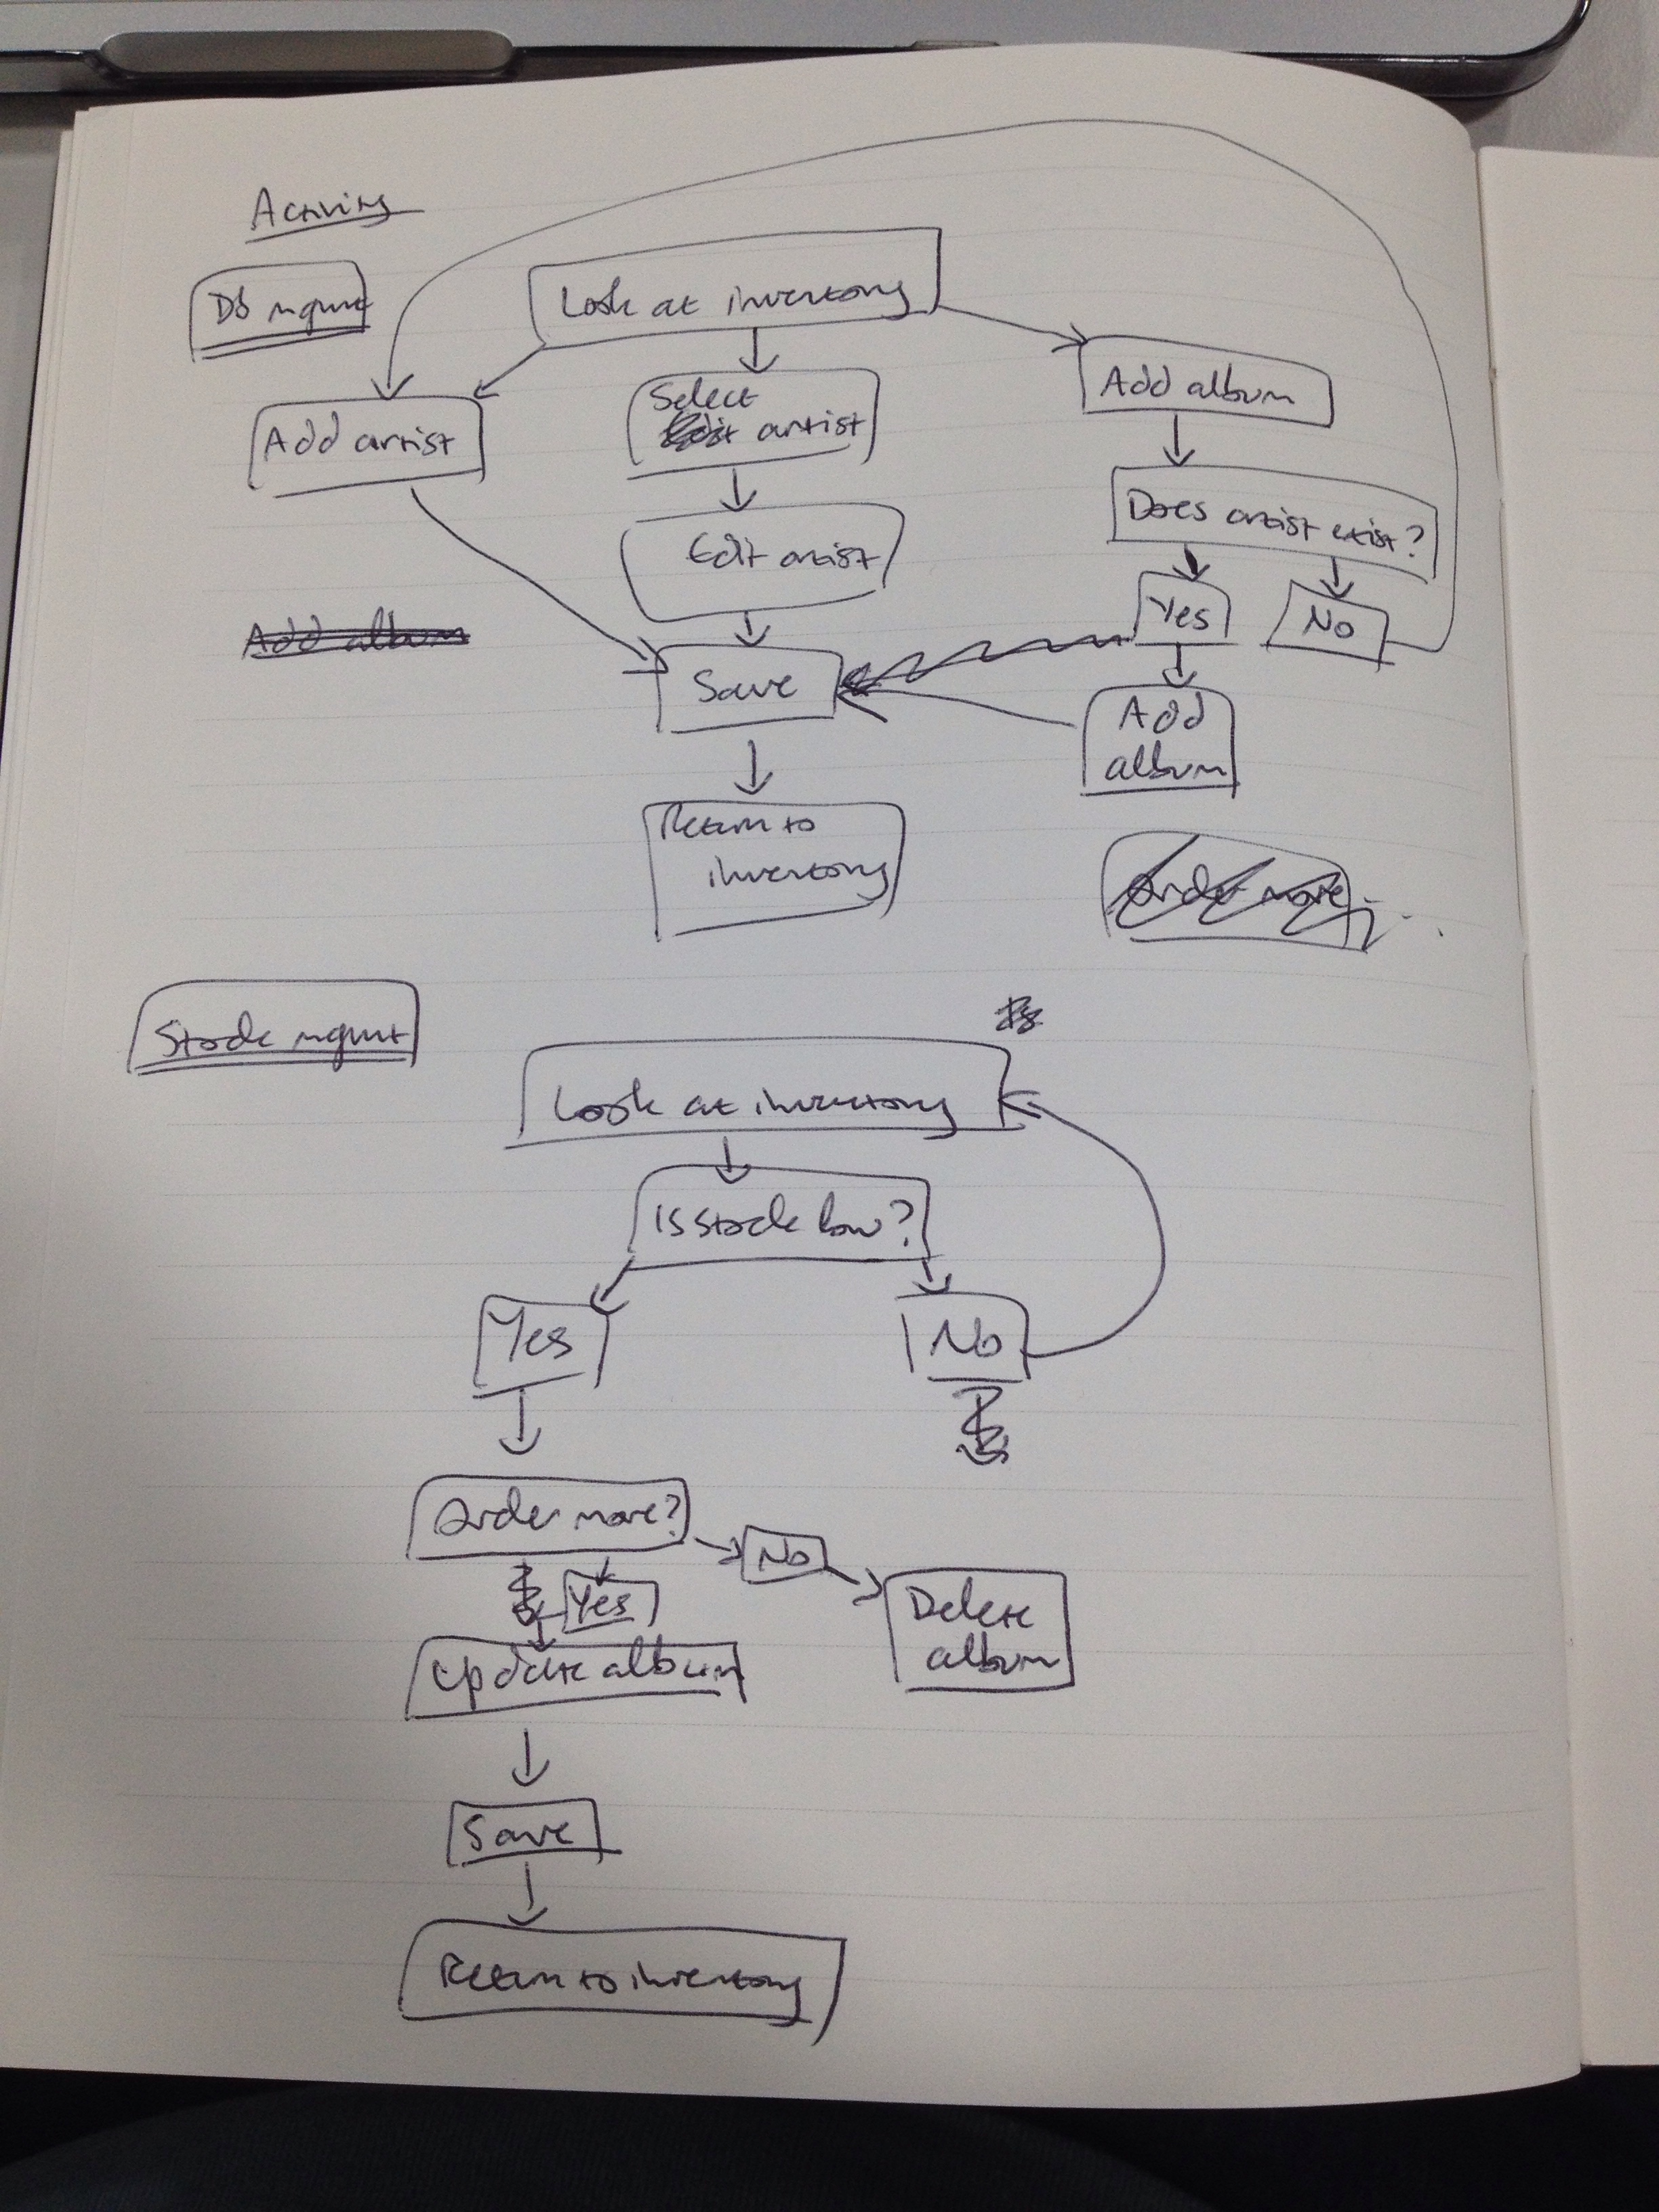 Activity
DB mgmt
Look at inventory
Add artist
Select
Edit artist
Add album
Edit artist
Does artist exist?
Yes
No
Add album
Save
Add
album
Return to
inventory
Order more
Stock mgmt
Look at inventory
Is stock low?
Yes
No
Order more?
No
Yes
Delete
album
Update album
Save
Return to inventory